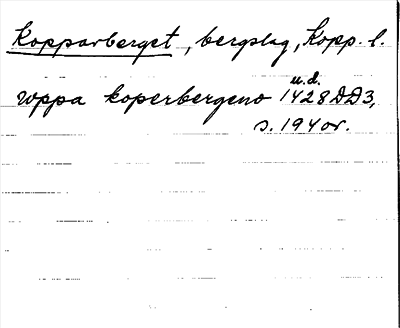 Kopparberget, bergslag, Kopp. l.
u.d.
uppa koperbergeno 1428 DD3,
s. 194 or.